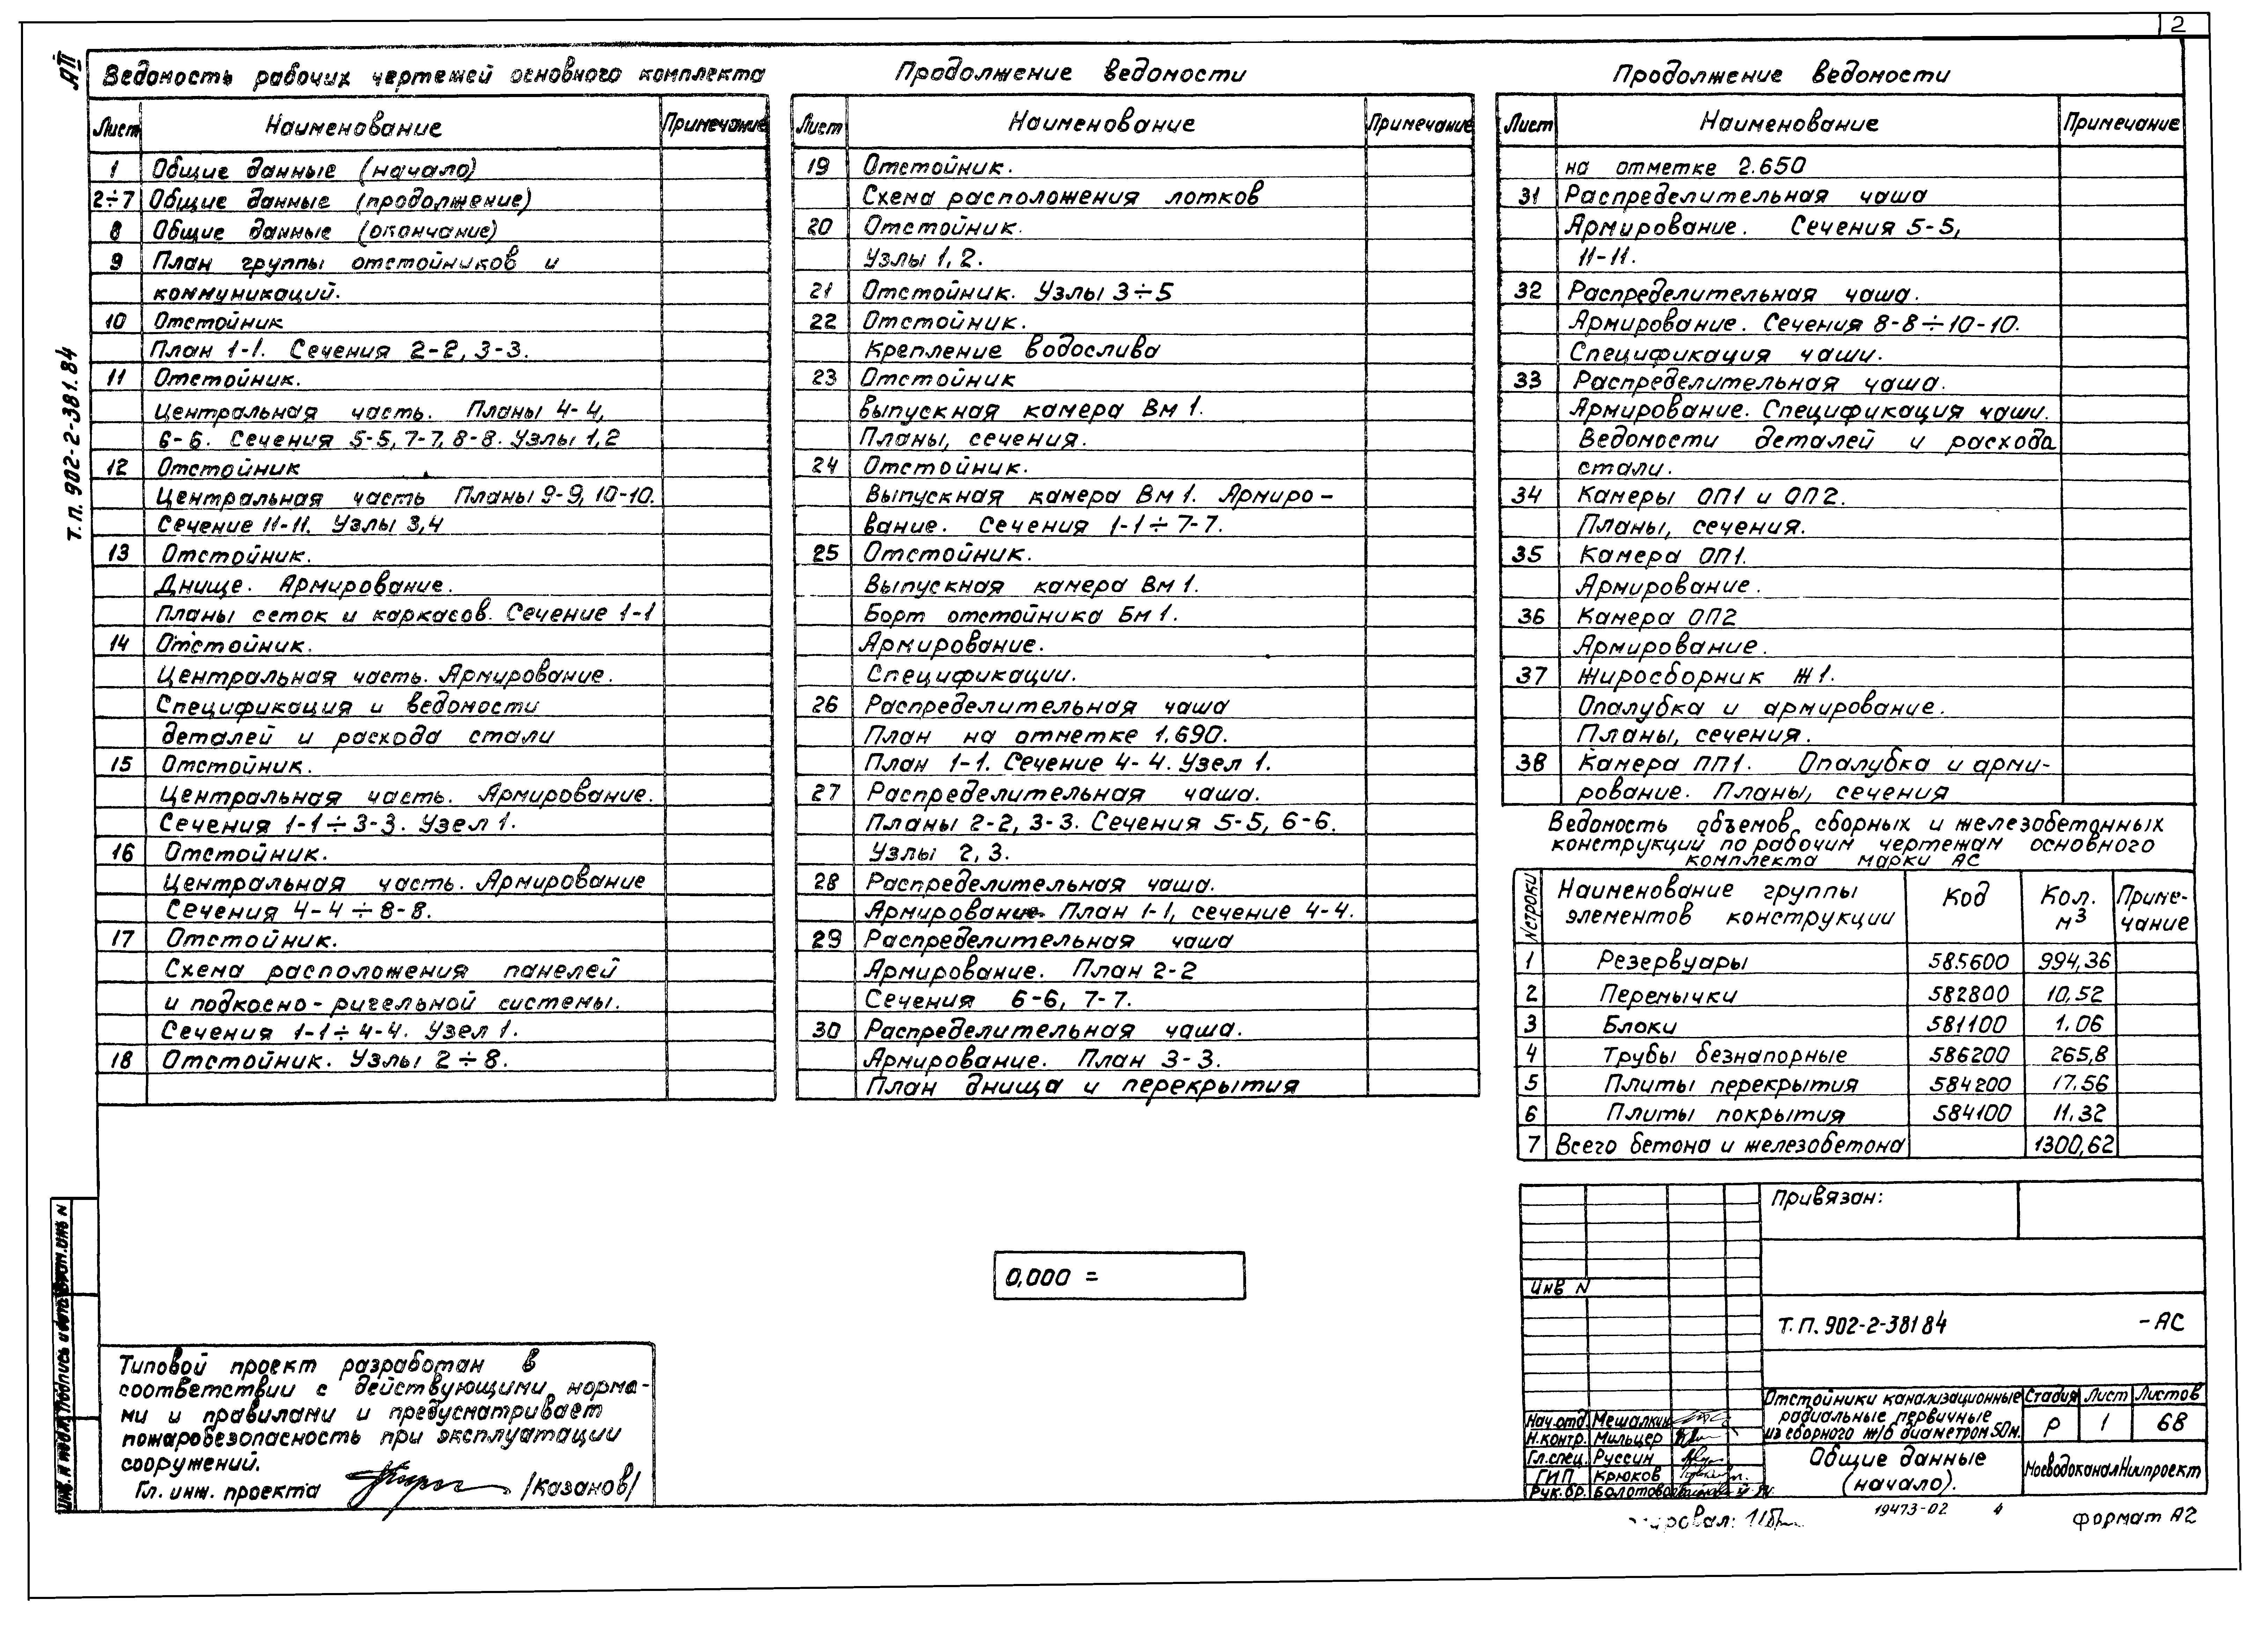 2
АII
Т.П. 902-2-381.84
Ведомость рабочих чертежей основного комплекта
Лист Наименование Примечание
1 Общие данные (начало)
2÷7 Общие данные (продолжение)
8 Общие данные (окончание)
9 План группы отстойников и
коммуникаций.
10 Отстойник
План 1-1. Сечения 2-2, 3-3.
11 Отстойник.
Центральная часть. Планы 4-4,
6-6. Сечения 5-5, 7-7, 8-8. Узлы 1,2
12 Отстойник
Центральная часть Планы 9-9, 10-10.
Сечение 11-11. Узлы 3,4
13 Отстойник.
Днище. Армирование.
Планы сеток и каркасов. Сечение 1-1
14 Отстойник.
Центральная часть. Армирование.
Спецификация и ведомости
деталей и расхода стали
15 Отстойник.
Центральная часть. Армирование.
Сечения 1-1÷3-3. Узел 1.
16 Отстойник.
Центральная часть. Армирование
Сечения 4-4÷8-8.
17 Отстойник.
Схема расположения панелей
и подкосно-ригельной системы.
Сечения 1-1÷4-4. Узел 1.
18 Отстойник. Узлы 2÷8.
Продолжение ведомости
Лист Наименование Примечание
19 Отстойник.
Схема расположения лотков
20 Отстойник.
Узлы 1, 2.
21 Отстойник. Узлы 3÷5
22 Отстойник.
Крепление водослива
23 Отстойник
выпускная камера Вм 1.
Планы, сечения.
24 Отстойник.
Выпускная камера Вм 1. Армиро-
вание. Сечения 1-1÷7-7.
25 Отстойник.
Выпускная камера Вм 1.
Борт отстойника Бм 1.
Армирование.
Спецификации.
26 Распределительная чаша
План на отметке 1.690.
План 1-1. Сечение 4-4. Узел 1.
27 Распределительная чаша.
Планы 2-2, 3-3. Сечения 5-5, 6-6.
Узлы 2, 3.
28 Распределительная чаша.
Армирование. План 1-1, сечение 4-4.
29 Распределительная чаша
Армирование. План 2-2
Сечения 6-6, 7-7.
30 Распределительная чаша.
Армирование. План 3-3.
План днища и перекрытия
Продолжение ведомости
Лист Наименование Примечание
на отметке 2.650
31 Распределительная чаша
Армирование. Сечения 5-5,
11-11.
32 Распределительная чаша.
Армирование. Сечения 8-8÷10-10.
Спецификация чаши.
33 Распределительная чаша.
Армирование. Спецификация чаши.
Ведомости деталей и расхода
стали.
34 Камеры ОП1 и ОП2.
Планы, сечения.
35 Камера ОП1.
Армирование.
36 Камера ОП2
Армирование.
37 Жиросборник Ж1.
Опалубка и армирование.
Планы, сечения.
38 Камера ПП1. Опалубка и арми-
рование. Планы, сечения
Ведомость объемов сборных и железобетонных
конструкций по рабочим чертежам основного
комплекта марки АС
№строки Наименование группы элементов конструкции Код Кол. м³ Приме-чание
1 Резервуары 585600 994,36
2 Перемычки 582800 10,52
3 Блоки 581100 1.06
4 Трубы безнапорные 586200 265,8
5 Плиты перекрытия 584200 17.56
6 Плиты покрытия 584100 11.32
7 Всего бетона и железобетона 1300,62
0,000 =
Типовой проект разработан в
соответствии с действующими норма-
ми и правилами и предусматривает
пожаробезопасность при эксплуатации
сооружений.
Гл. инж. проекта /Казанов/
Инв. N подл. Подпись и дата Взам. инв N
Привязан:
Инв N
Т.П. 902-2-381 84 -АС
Нач.отд. Мешалкин
Н.контр. Мильцер
Гл.спец. Руссин
ГИП Крюков
Рук.бр. Болотова
Отстойники канализационные
радиальные первичные
из сборного ж/б диаметром 50м.
Стадия Лист Листов
Р 1 68
Общие данные
(начало).
МосводоканалНиипроект
19473-02 4
формат А2